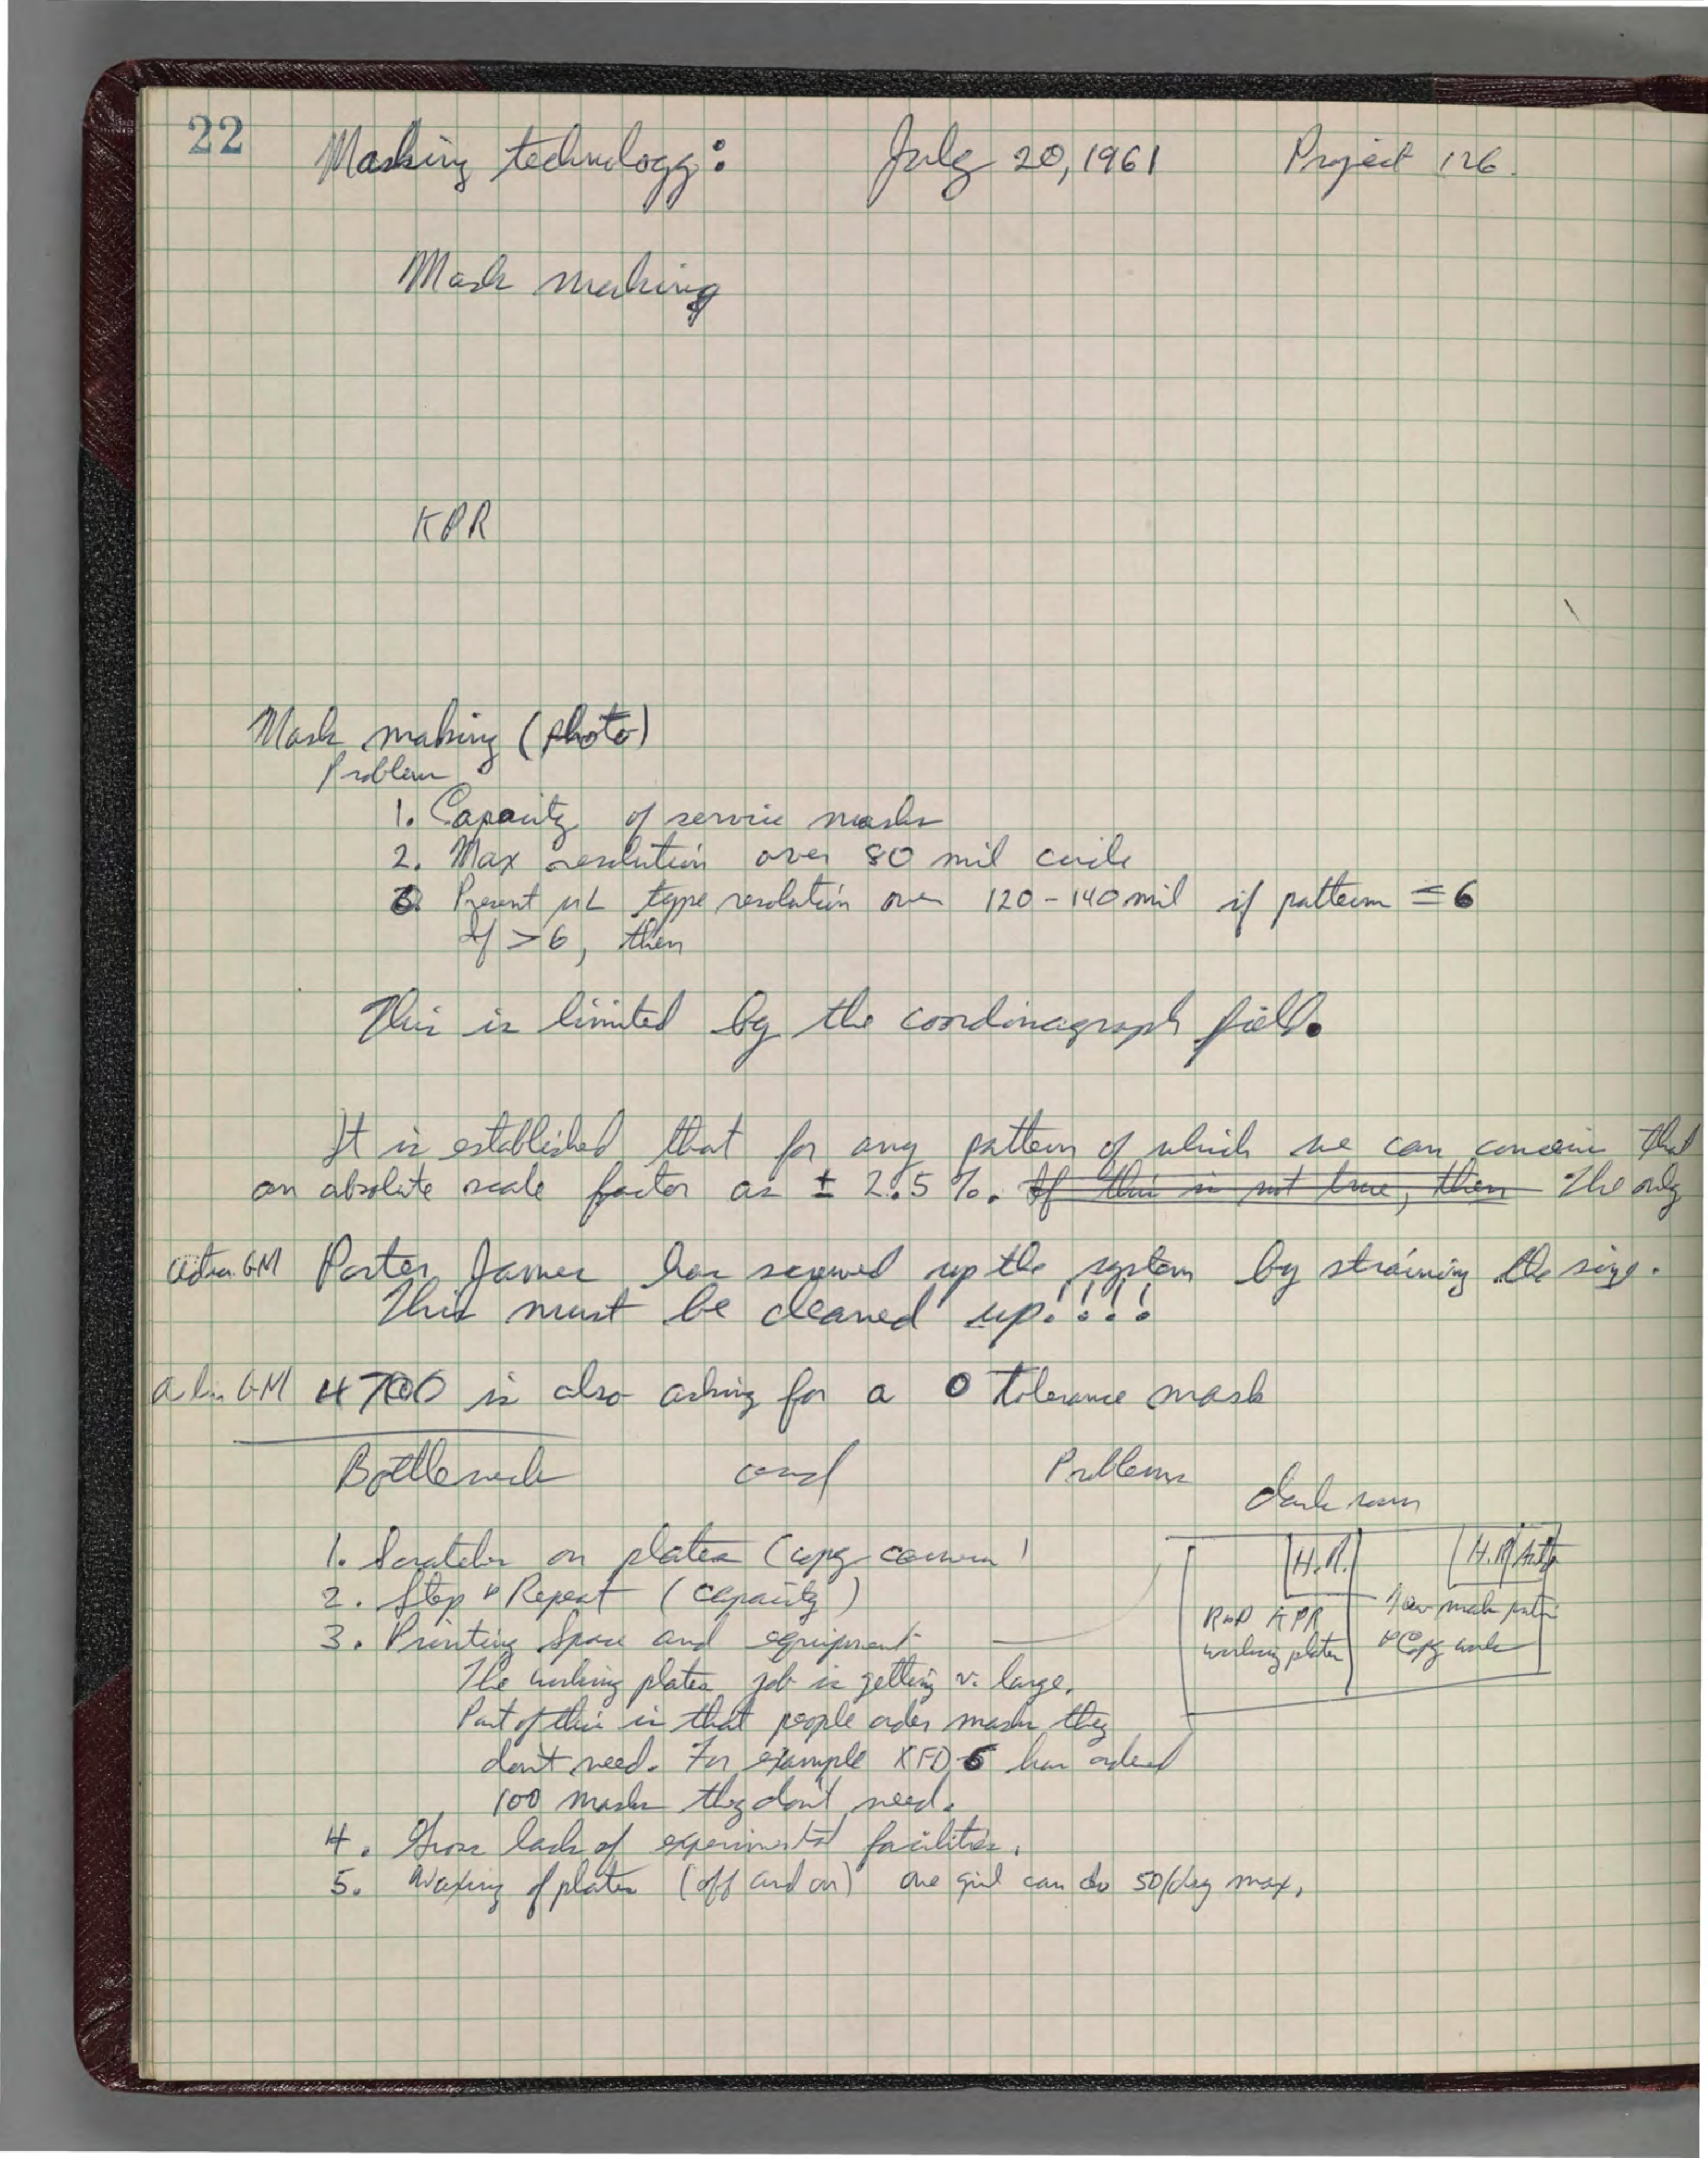 22 Masking technology: July 20, 1961 Project 126.
Mask making
KPR
Mask making (photo)
Problem
1. Capacity of service masks
2. Max resolution over 80 mil circle
3. Present µL type resolution over 120-140 mil if pattern ≤ 6
If > 6, then
This is limited by the coordinagraph field.
It is established that for any pattern of which we can conceive that
an absolute scale factor as ± 2.5 %. If this is not true, then The only
action GM Porter James has screwed up the system by straining the size.
This must be cleaned up!!!!
GM 4700 is also asking for a 0 tolerance mask
Bottleneck and Problems
dark room
1. Scratches on plates (copy camera)
2. Step & Repeat (capacity)
3. Printing space and equipment
The working plates job is getting v. large.
Part of this is that people order masks they
don't need. For example XFD 6 has ordered
100 masks they don't need.
4. Gross lack of experimental facilities.
5. Waxing of plates (off and on) one girl can do 50/day max.
H.R. H.R.
R&D KPR
working plates
mask
& Copy work